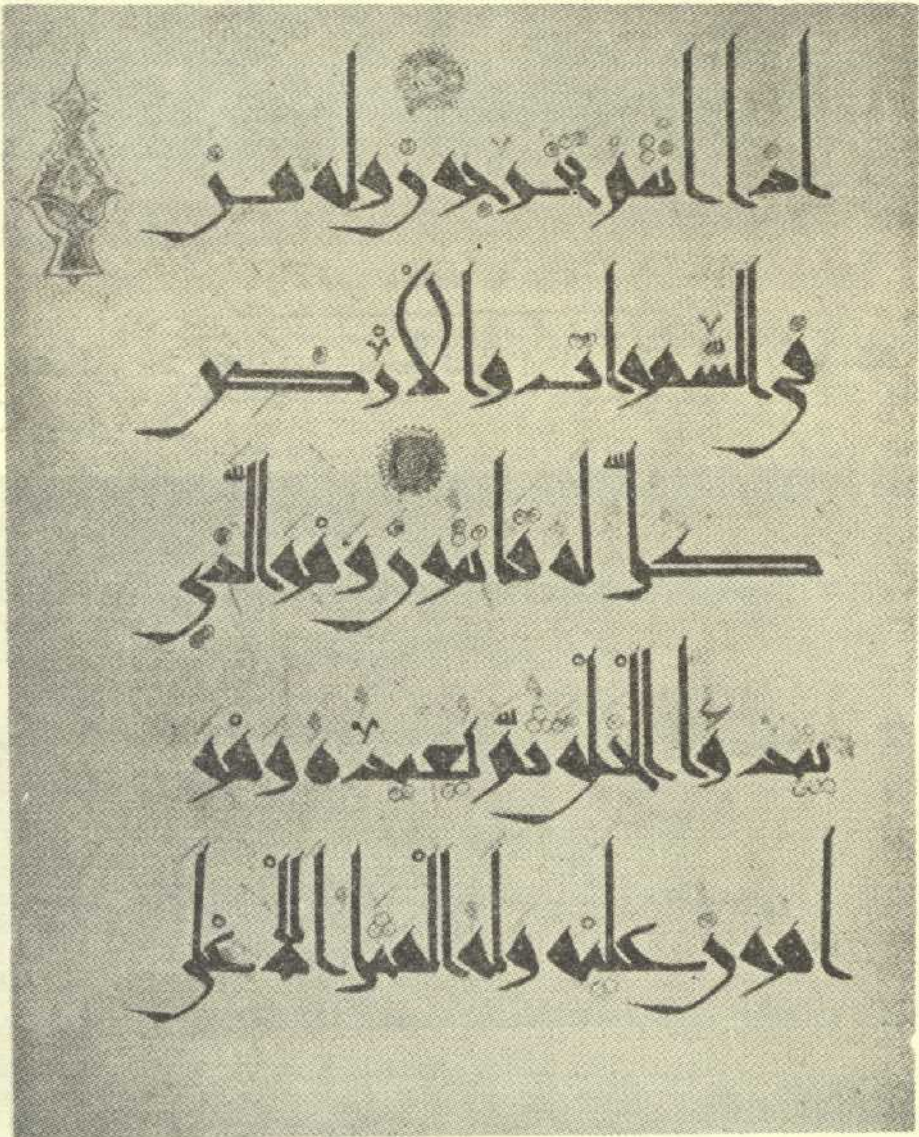 اذا انتم تخرجون وله من
في السموات والارض
كل له قانتون وهو الذي
يبدؤا الخلق ثم يعيده وهو
اهون عليه وله المثل الاعلى